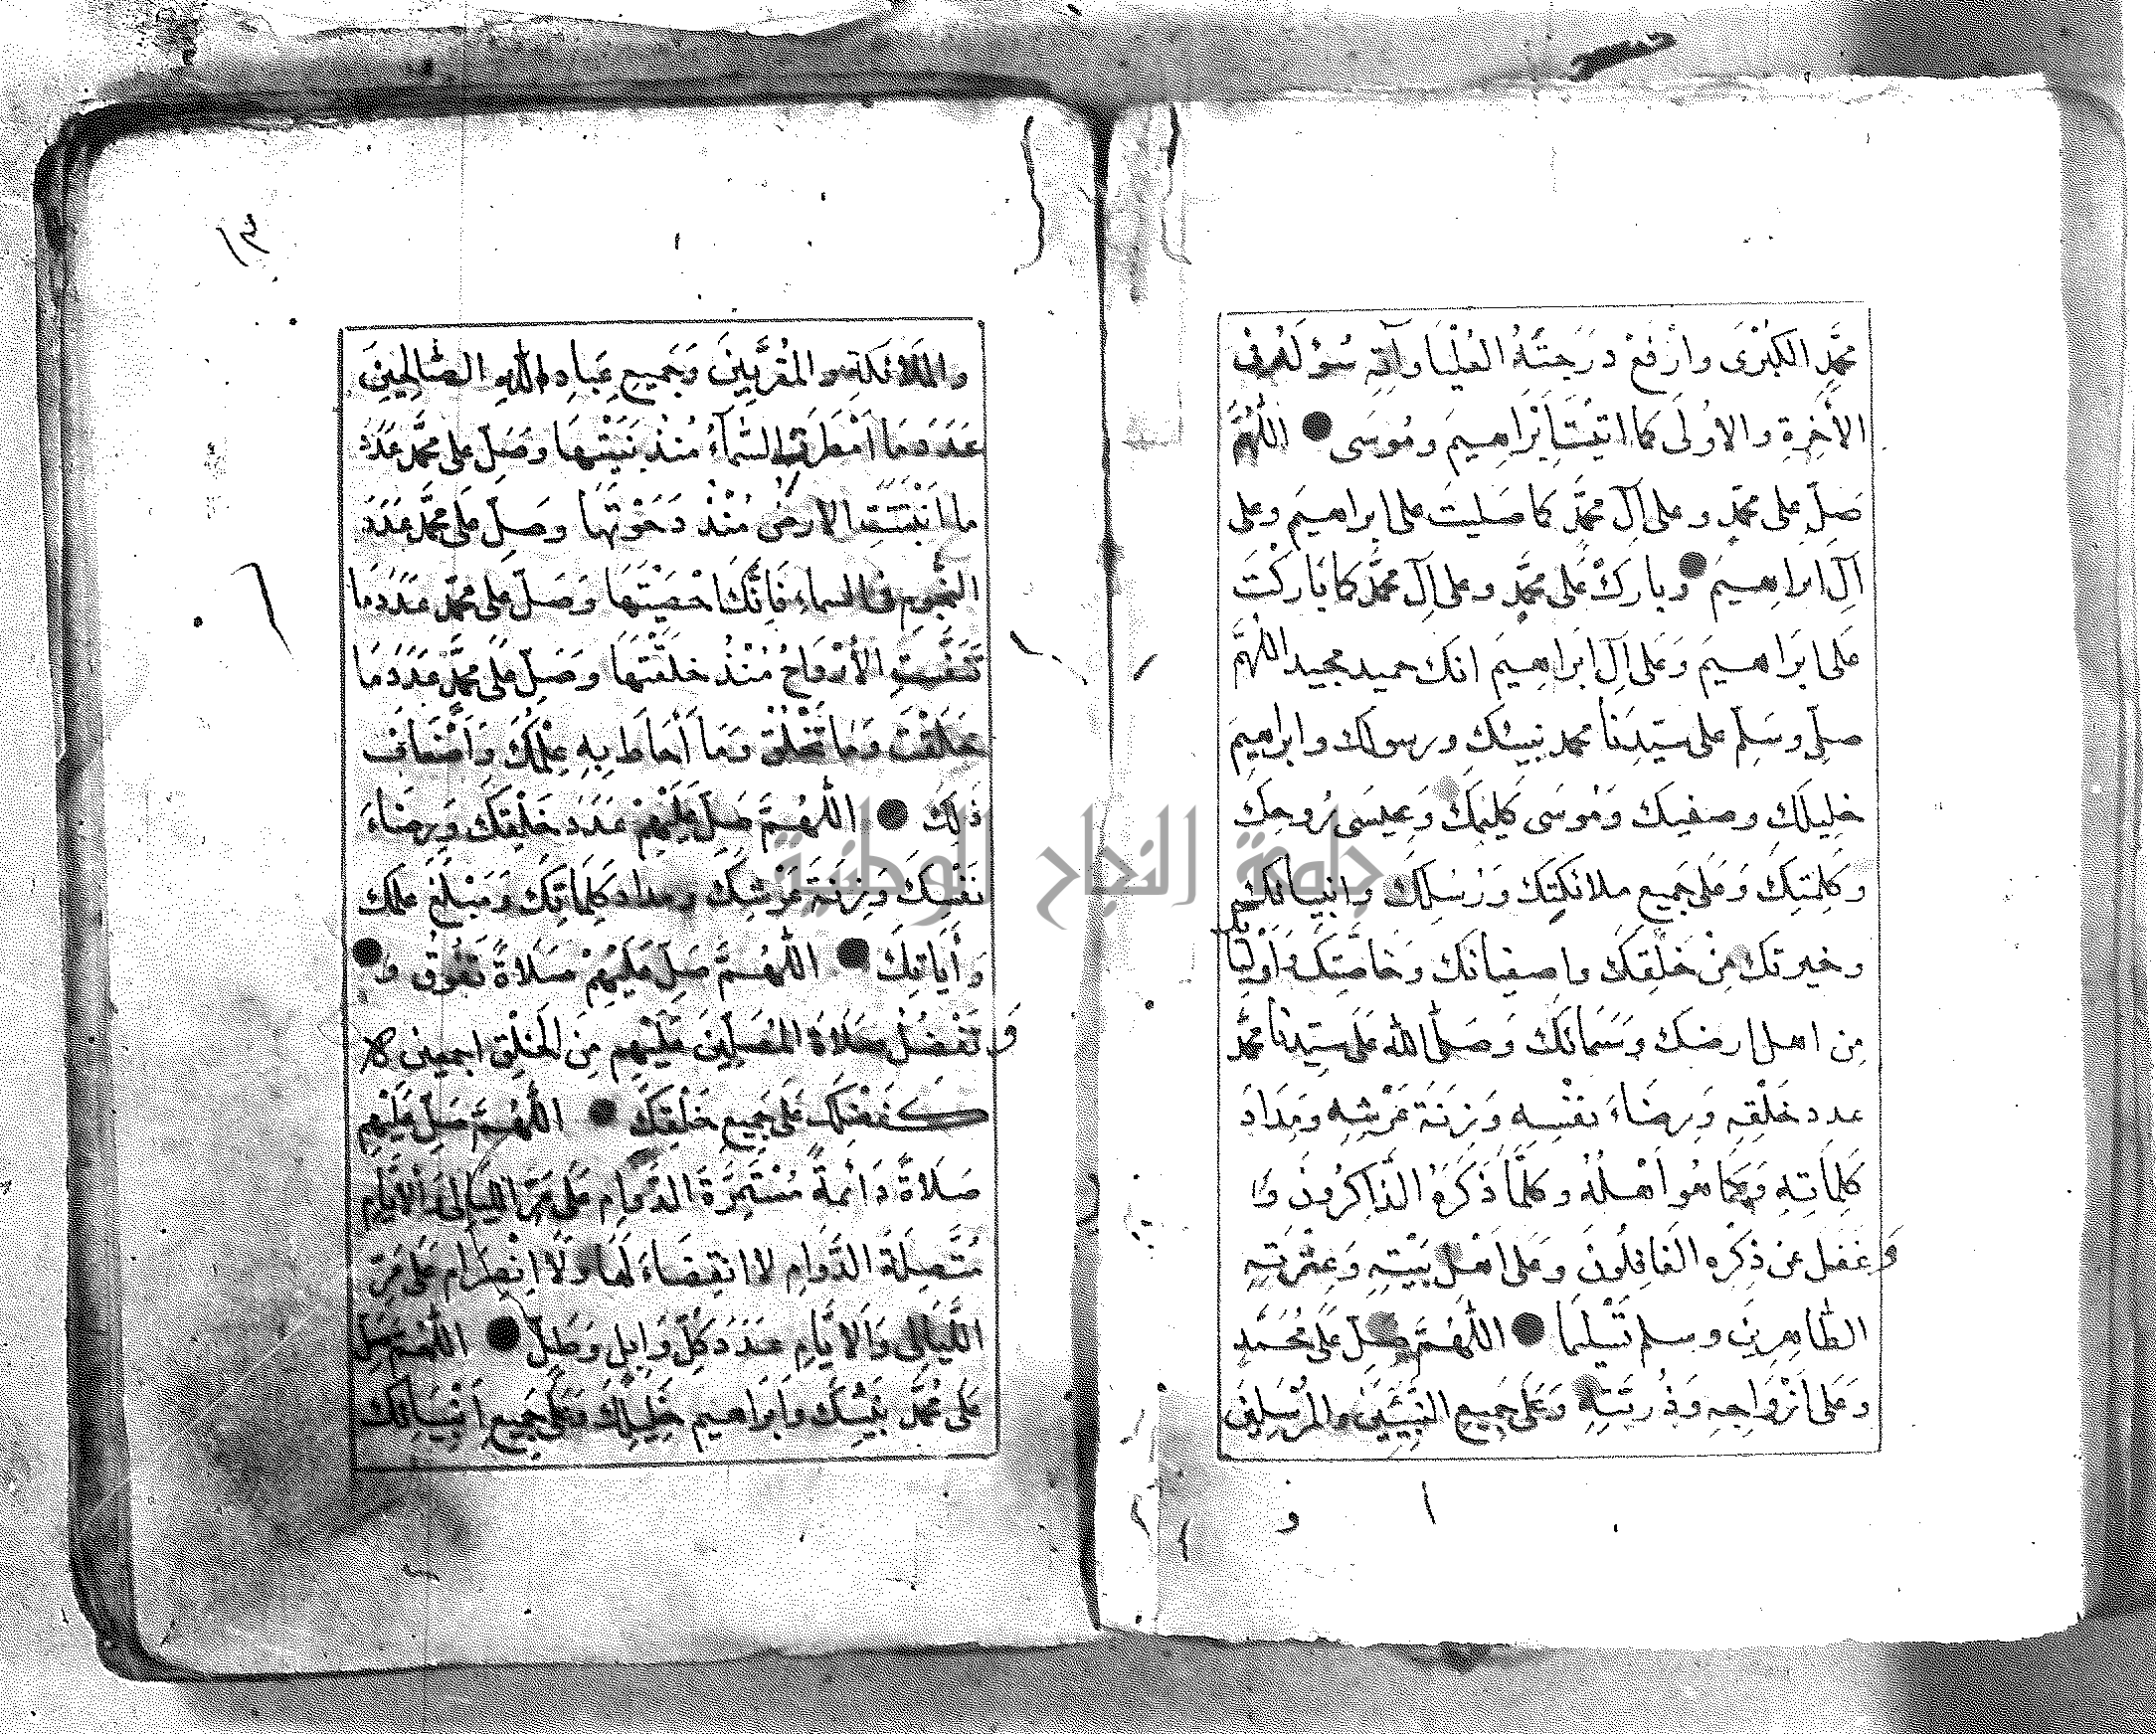 محمَّدٍ الكُبْرَى وارْفَعْ دَرَجَتَهُ العُلْيَا وَآتِهِ سُؤْلَهُ فى
الأخِرَةِ والأولَى كما اتيْتَ اِبْرَاهيمَ ومُوسَى اللَّهُمَّ
صَلِّ على محمّدٍ وعلى آلِ محمَّدٍ كما صَليتَ على ابراهيم وعلى
آلِ ابراهيمَ وبارك على محمَّدٍ وعلى آلِ محمَّدٍ كما بَاركْتَ
على ابرَاهيمَ وَعَلى آلِ ابْرَاهيمَ انك حميد مجيد اللهُمَّ
صلّ وسَلِّم على سيّدِنَا محمد نبيّك ورسولك وابراهيمَ
خليلك وصفيك وَمُوسَى كَلِيمِكَ وَعيسَى رُوحِكَ
وكَلِمَتِكَ وَعَلى جَميع ملائكتِكَ وَرُسُلِكَ وانبيائك
وخيرتك مِنْ خَلْقِكَ واصفيائك وَخاصَّتِكَ وَأوْليائك
مِن اهل ارضك وَسَمَائك وَصَلَّى الله عَلى سيّدِنَا محمَّد
عدد خَلْقِهِ وَرِضَاءَ نَفْسِهِ وَزِنَةَ عَرْشِهِ وَمِدَادَ
كَلِمَاتِهِ وَكمَا هُوَ أهْلُهُ وكلَّمَا ذَكَرَهُ الذَّاكِرُونَ وَ
وَغفل عَن ذِكْرِهِ الغَافِلُونَ وَعَلى اَهْلِ بَيْتِهِ وَعِتْرَتِهِ
الطَّاهِرِينَ وسلم تَسْلِيمَا اللّهُمَّ صَلِّ عَلى مُحَمَّدٍ
وَعَلَى أزْوَاجِهِ وَذُرِّيَّتِهِ وَعَلَى جَميعِ النَّبِيِّينَ والمُرْسَلِينَ
١٣
والملائكةِ والمُقَرَّبِينَ وَجَميعِ عِبَادِ اللّهِ الصَّالِحِينَ
عَدَدَ مَا اَمْطَرَتِ السَّمَآءُ مُنْذُ بَنَيْتَهَا وصَلِّ على محمَّدٍ عَدَدَ
ما اَنْبَتَتِ الارضُ مُنْذُ دَحَوْتَهَا وصَلِّ على محمَّدٍ عَدَدَ
النُّجُومِ فى السماءِ فَإنَّكَ احْصَيْتَهَا وَصَلِّ على محمّدٍ عَدَدَ مَا
تَنَفَّسَتِ الأرْوَاحُ مُنْذُ خَلَقْتَهَا وَصَلِّ عَلى محمَّدٍ عَدَدَ مَا
خَلَقْتَ وَمَا تَخْلُقُ وَمَا أحَاطَ بِهِ عِلْمُكَ وَاَضْعَافَ
ذَلِكَ اللّهُمَّ صَلِّ عَلَيْهِمْ عَدَدَ خَلْقِكَ وَرِضَاءَ
نَفْسِكَ وَزِنَةَ عَرْشِكَ ومِدَادَ كَلِمَاتِكَ وَمَبْلَغَ علمك
وَأيَاتِكَ اللّهُمَّ صَلِّ عَلَيْهِمْ صَلاةً تَفُوقُ وَ
وَتَفْضُلُ صَلاةَ المُصَلِّينَ عَلَيْهِم مِنَ الخَلْقِ اجمعين
كَفَضْلِكَ عَلى جَميعِ خَلْقِكَ اللّهُمَّ صَلِّ عَلَيْهِم
صَلاةً دَائِمَةً مُسْتَمِرَّةَ الدَّوَامِ عَلى مَرِّ اللَّيَالى وَالأيَّامِ
مُتَّصِلَةَ الدَّوَامِ لا انْقِضَاءَ لَهَا وَلا انْصِرَامَ عَلى مَرِّ
اللَّيَالى وَالأيَّامِ عَدَدَ كُلِّ وَابِلٍ وَطَلٍّ اللّهُمَّ صَلِّ
عَلى مُحَمَّدٍ نَبِيِّكَ وابرَاهيم خَلِيلِكَ وَعَلى جَميعِ اَنْبيَائك
جامعة النجاح الوطنية